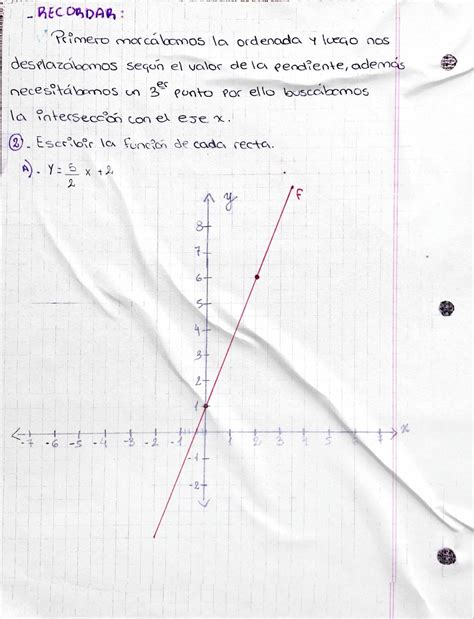 - RECORDAR:
Primero marcábamos la ordenada y luego nos
desplazábamos según el valor de la pendiente, además
necesitábamos un 3er punto por ello buscábamos
la intersección con el eje x.
②. Escribir la función de cada recta.
A). Y = 5/2 x + 2
y
F
8
7
6
5
4
3
2
1
-7 -6 -5 -4 -3 -2 -1 1 2 3 4 5 6 7 x
-1
-2